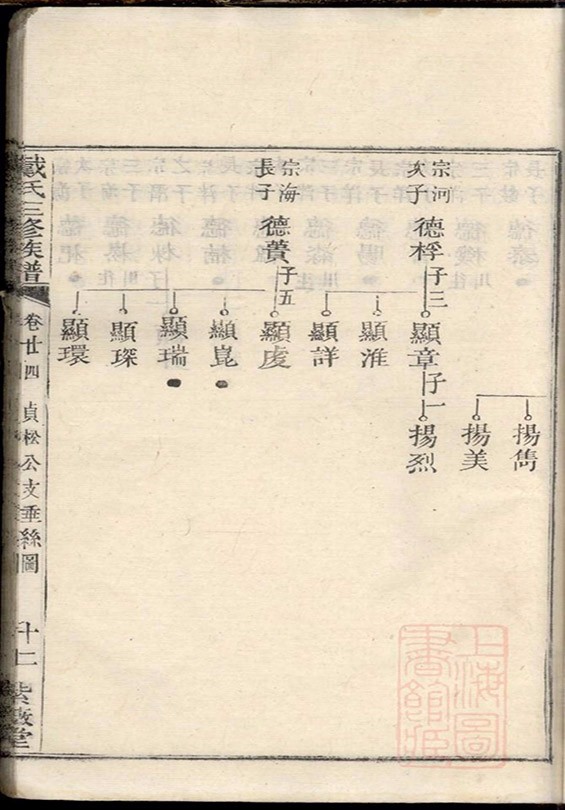 揚雋
揚美
宗河
次子
德桴
子三
顯章
子一
揚烈
顯淮
顯詳
宗海
長子
德蕢
子五
顯虔
顯崑
顯瑞
顯琛
顯環
戴氏三修族譜
卷廿四
貞松公支垂絲圖
紫薇堂
上海圖書館藏